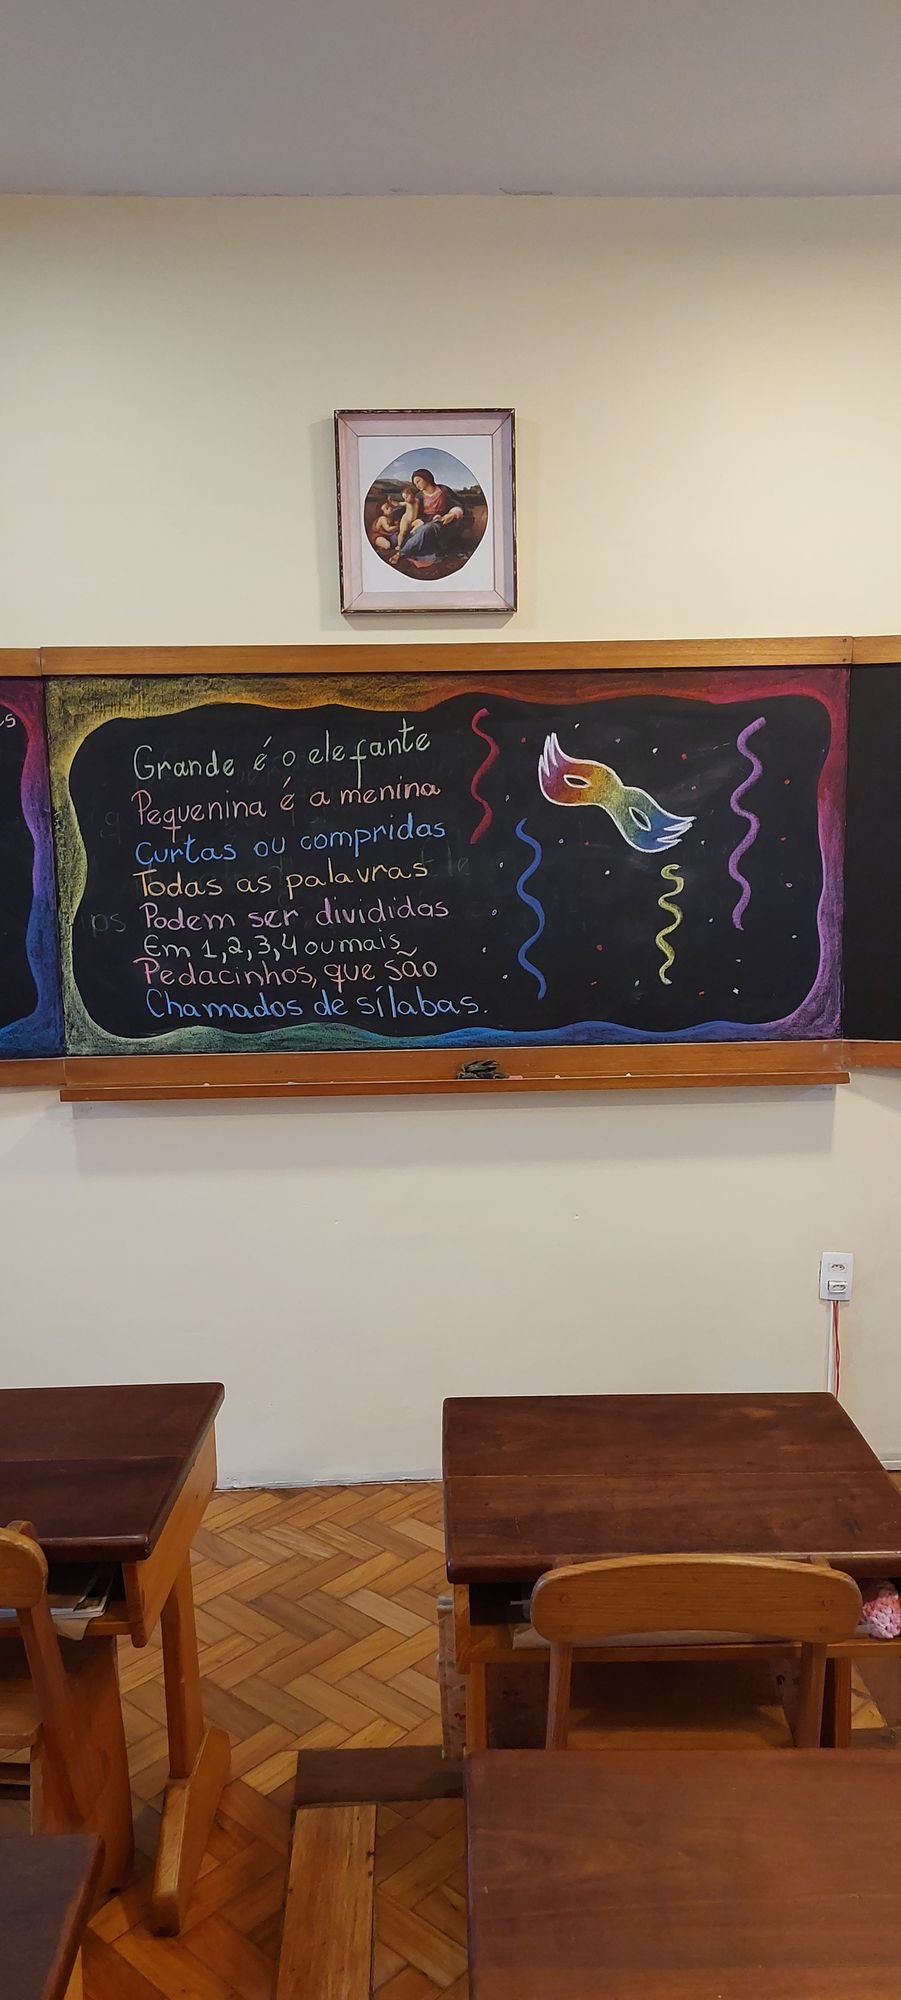 Grande é o elefante
Pequenina é a menina
Curtas ou compridas
Todas as palavras
Podem ser divididas
Em 1,2,3,4 ou mais
Pedacinhos, que são
Chamados de sílabas.